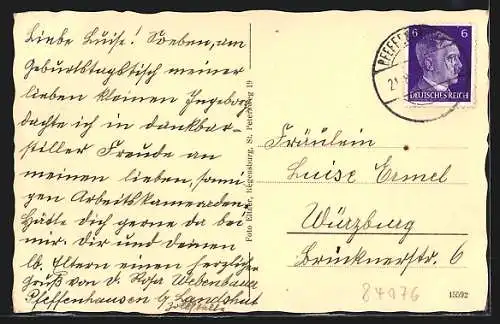 Liebe Luise! Soeben, am
Geburtstagstisch meiner
lieben kleinen Ingeborg
dachte ich in dankbar-
stiller Freude an
meinen lieben, sonni
gen Arbeitskameraden.
Hätte Dich gerne da bei
mir. Dir und Deinen
lb. Eltern einen herzlichen
Gruß von d. Rosa Webenbauer
Pfeffenhausen b/ Landshut
Foto Ettner, Regensburg, St. Petersweg 19
PFEFFEN
21.
6 6
DEUTSCHES REICH
Fräulein
Luise Ermel
Würzburg
Brücknerstr. 6
84076
15592